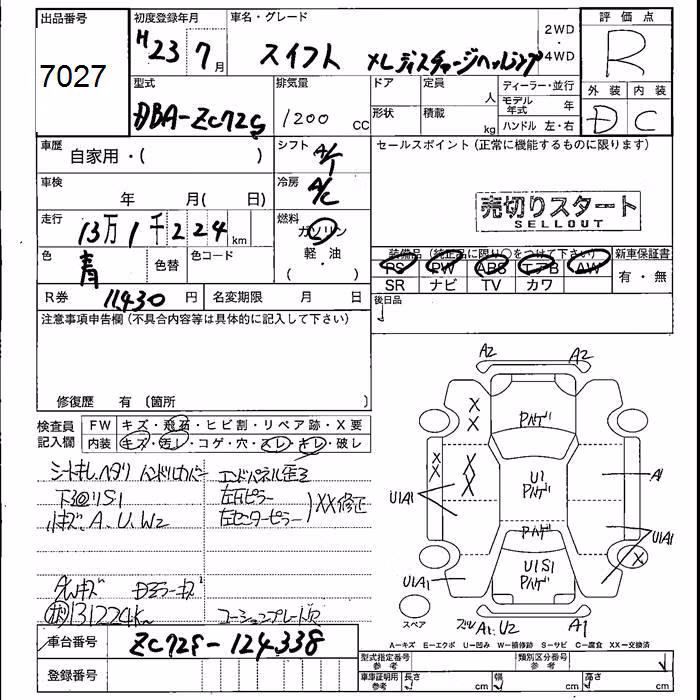 出品番号 初度登録年月 車名・グレード 2WD 評価点
7027 H23 7月 スイフト XLディスチャージヘッドランプ ・4WD R
型式 排気量 ドア 定員 人 ディーラー・並行 外装 内装
DBA-ZC72S 1200 CC 形状 積載 kg モデル年式 年 D C
ハンドル 左・右
車歴 自家用・( ) シフト A/T セールスポイント(正常に機能するものに限ります)
車検 年 月( 日) 冷房 A/C
売切りスタート
SELLOUT
走行 13万1千224km 燃料 ガソリン
軽・油
・( )
色 青 色替 色コード
装備品(純正品に限り○をつけて下さい) 新車保証書
PS PW ABS エアB AW 有・無
SR ナビ TV カワ
R券 11430円 名変期限 月 日 後日品
注意事項申告欄(不具合内容等は具体的に記入して下さい)
修復歴 有 〔箇所 〕
検査員記入欄 FW キズ・飛石・ヒビ割・リペア跡・X要
内装 キズ・汚レ・コゲ・穴・スレ・キレ・破レ
シートキレ、ヘタリ ハンドルカバー エンドパネル歪
下廻りS1 左右ピラー
小キズ、A、U、W2 左センターピラー XX修正
AWキズ Dミラーキズ
131224Km コーションプレート欠
A2 A2
X
X
Pハゲ
X
X
X
X
U1
Pハゲ
A1
U1A1
Pハゲ
U1A1
U1S1
Pハゲ
U1A1
X
スペア
A1、U2 A1
A=キズ E=エクボ U=凹み W=補修跡 S=サビ C=腐食 XX=交換済
車台番号 ZC72S-124338
登録番号
型式指定番号 参考 類別区分番号 参考
車庫証明用 参考 長さ cm 幅 cm 高さ cm